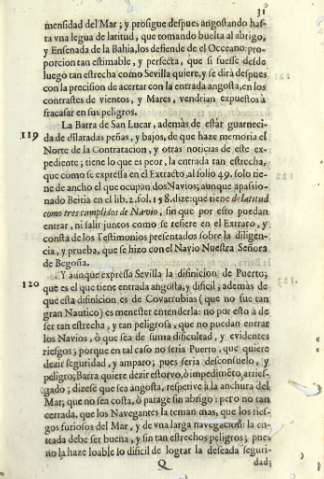 31
mensidad del Mar; y prosigue despues angostando has-
ta vna legua de latitud, que tomando buelta al abrigo,
y Ensenada de la Bahia, los defiende de el Occeano: pro-
porcion tan estimable, y perfecta, que si fuesse desde
luego tan estrecha como Sevilla quiere, y se dirà despues
con la precision de acertar con la entrada angosta, en los
contrastes de vientos, y Mares, vendrian expuestos à
fracasar en sus peligros.
119 La Barra de San Lucar, ademàs de estàr guarneci-
da de dilatadas peñas, y bajos, de que haze memoria el
Norte de la Contratacion, y otras noticias de este ex-
pediente; tiene lo que es peor, la entrada tan estrecha,
que como se expressa en el Extracto, al folio 49. solo tie-
ne de ancho el que ocupan dos Navios; aunque apasio-
nado Beitia en el lib. 2. fol. 158. dize: que tiene de latitud
como tres cumplidos de Navio, sin que por esto puedan
entrar, ni salir juntos como se refiere en el Extrato, y
consta de los Testimonios presentados sobre la diligen-
cia, y prueba, que se hizo con el Navio Nuestra Señora
de Begoña.
120 Y aunque expressa Sevilla la difinicion de Puerto;
que es el que tiene entrada angosta, y dificil; ademàs de
que esta difinicion es de Covarrubias (que no fue tan
gran Nautico) es menester entenderla: no por esto à de
ser tan estrecha, y tan peligrosa, que no puedan entrar
los Navios, ò que sea de suma dificultad, y evidentes
riesgos; porque en tal caso no serìa Puerto, que quiere
dezir seguridad, y amparo; pues serìa desconsuelo, y
peligro; Barra quiere dezir estorvo, ò impedimeto, arries-
gado; dizese que sea angosta, respetive à la anchura del
Mar; que no sea costa, ò parage sin abrigo: pero no tan
cerrada, que los Navegantes la teman mas, que los ries-
gos furiosos del Mar, y de vna larga navegacion: la en-
trada debe ser buena, y sin tan estrechos peligros; pues
no la haze loable lo dificil de lograr la deseada seguri-
Q dad;